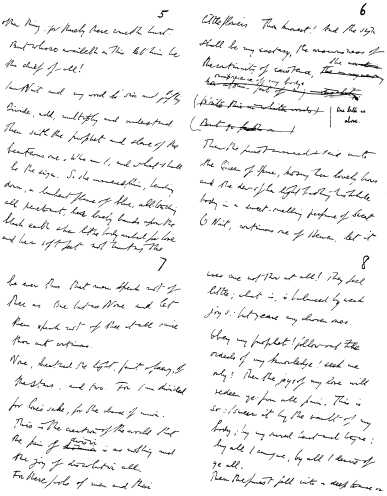 5
other thing; for thereby there cometh hurt.
But whoso availeth in this, let him be
the chief of all!
I am Nuit and my word is six and fifty
Divide, add, multiply and understand.
Then saith the prophet and slave of the
beauteous one. Who am I, and what shall
be the sign. So she answered him, bending
down, a lambent flame of blue, all touching
all penetrant, her lovely hands upon the
black earth & her lithe body arched for love
and her soft feet not hurting the
6
little flowers Thou knowest! And the sign
shall be my ecstasy, the consciousness of
the continuity of existence, the
omnipresence of my body.
(Write this in whiter words)
(But go forth on)
Then the priest answered & said unto
the Queen of Space, kissing her lovely brows
and the dew of her light bathing his whole
body in a sweet-smelling perfume of sweat
O Nuit, continuous one of Heaven, let it
7
be ever thus that men speak not of
Thee as One but as None and let
them speak not of thee at all since
thou art continuous
None, breathed the light, faint & faery, of
the stars, and two. For I am divided
for love's sake, for the chance of union.
This is the creation of the world that
the pain of division is as nothing and
the joy of dissolution all.
For these fools of men and their
8
woes care not thou at all! They feel
little; what is, is balanced by weak
joys: but ye are my chosen ones
Obey my prophet! follow out the
ordeals of my knowledge! seek me
only! Then the joys of my love will
redeem ye from all pain. This is
so: I swear it by the vault of my
body; by my sacred heart and tongue;
by all I can give, by all I desire of
ye all.
Then the priest fell into a deep trance or